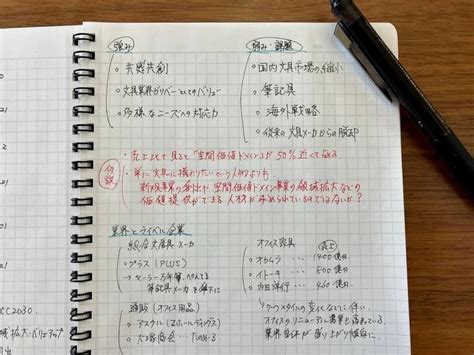 強み
○ 共感共創
○ 文具業界がリバー
○ 多様なニーズへの対応力
弱み・課題
○ 国内文具市場の縮小
○ 筆記具
○ 海外戦略
○ 従来の文具メーカーからの脱却
仮説
・売上比で見ると「空間価値ドメイン」が50%近くである
・単に文具に携わりたいという人材よりも、
新規事業の創出や空間価値ドメイン事業の領域拡大などの
価値提供ができる人材が求められているのではないか？
業界とライバル企業
総合文房具メーカ
・プラス（PLUS）
→ セーラー万年筆、ぺんてる
筆記具メーカを傘下に
通販（オフィス用品）
・アスクル（Zホールディングス）
・大塚商会
オフィス家具
売上
・オカムラ … 1400億円
・イトーキ … 800億円
・内田洋行 … 460億円
ワークスタイルの変化などに伴い、
オフィスのリニューアル需要も高まっている。
業界自体が盛り上がり傾向に。
CC2030